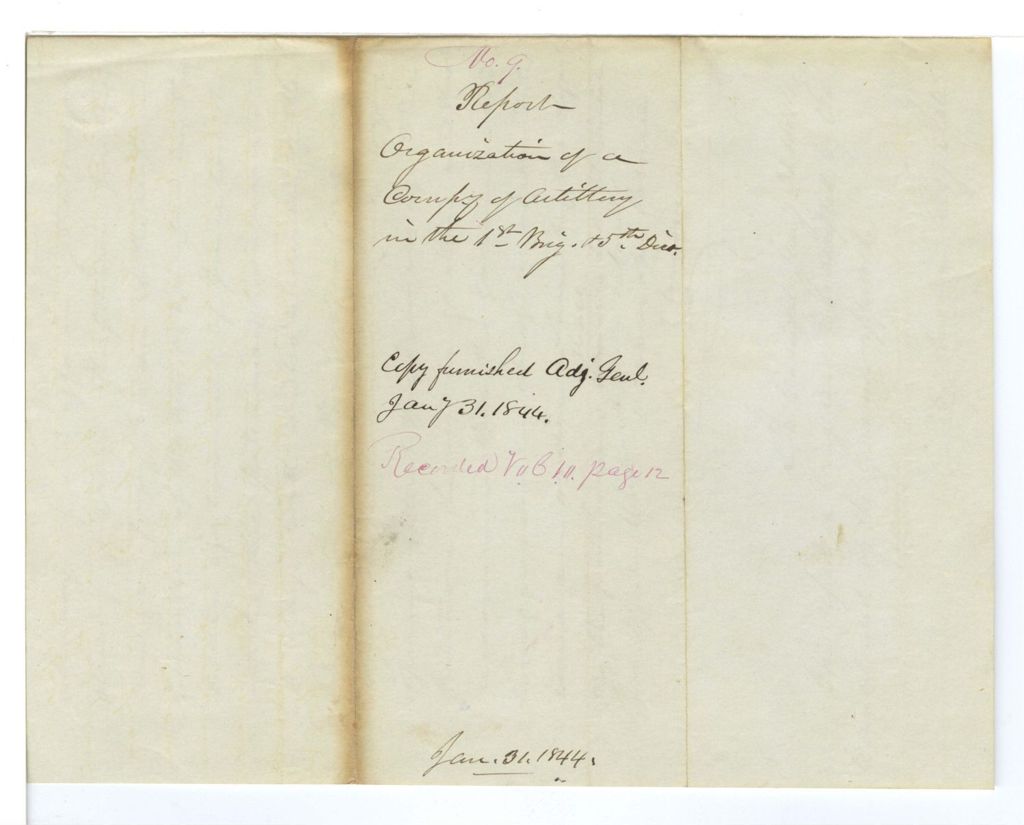 No. 9.
Report
Organization of a
Compy of Artillery
in the 1st Brig. 15th Divo.
Copy furnished Adj. Genl.
Jany 31. 1844.
Recorded Vol B 10. page 12
Jan. 31. 1844.